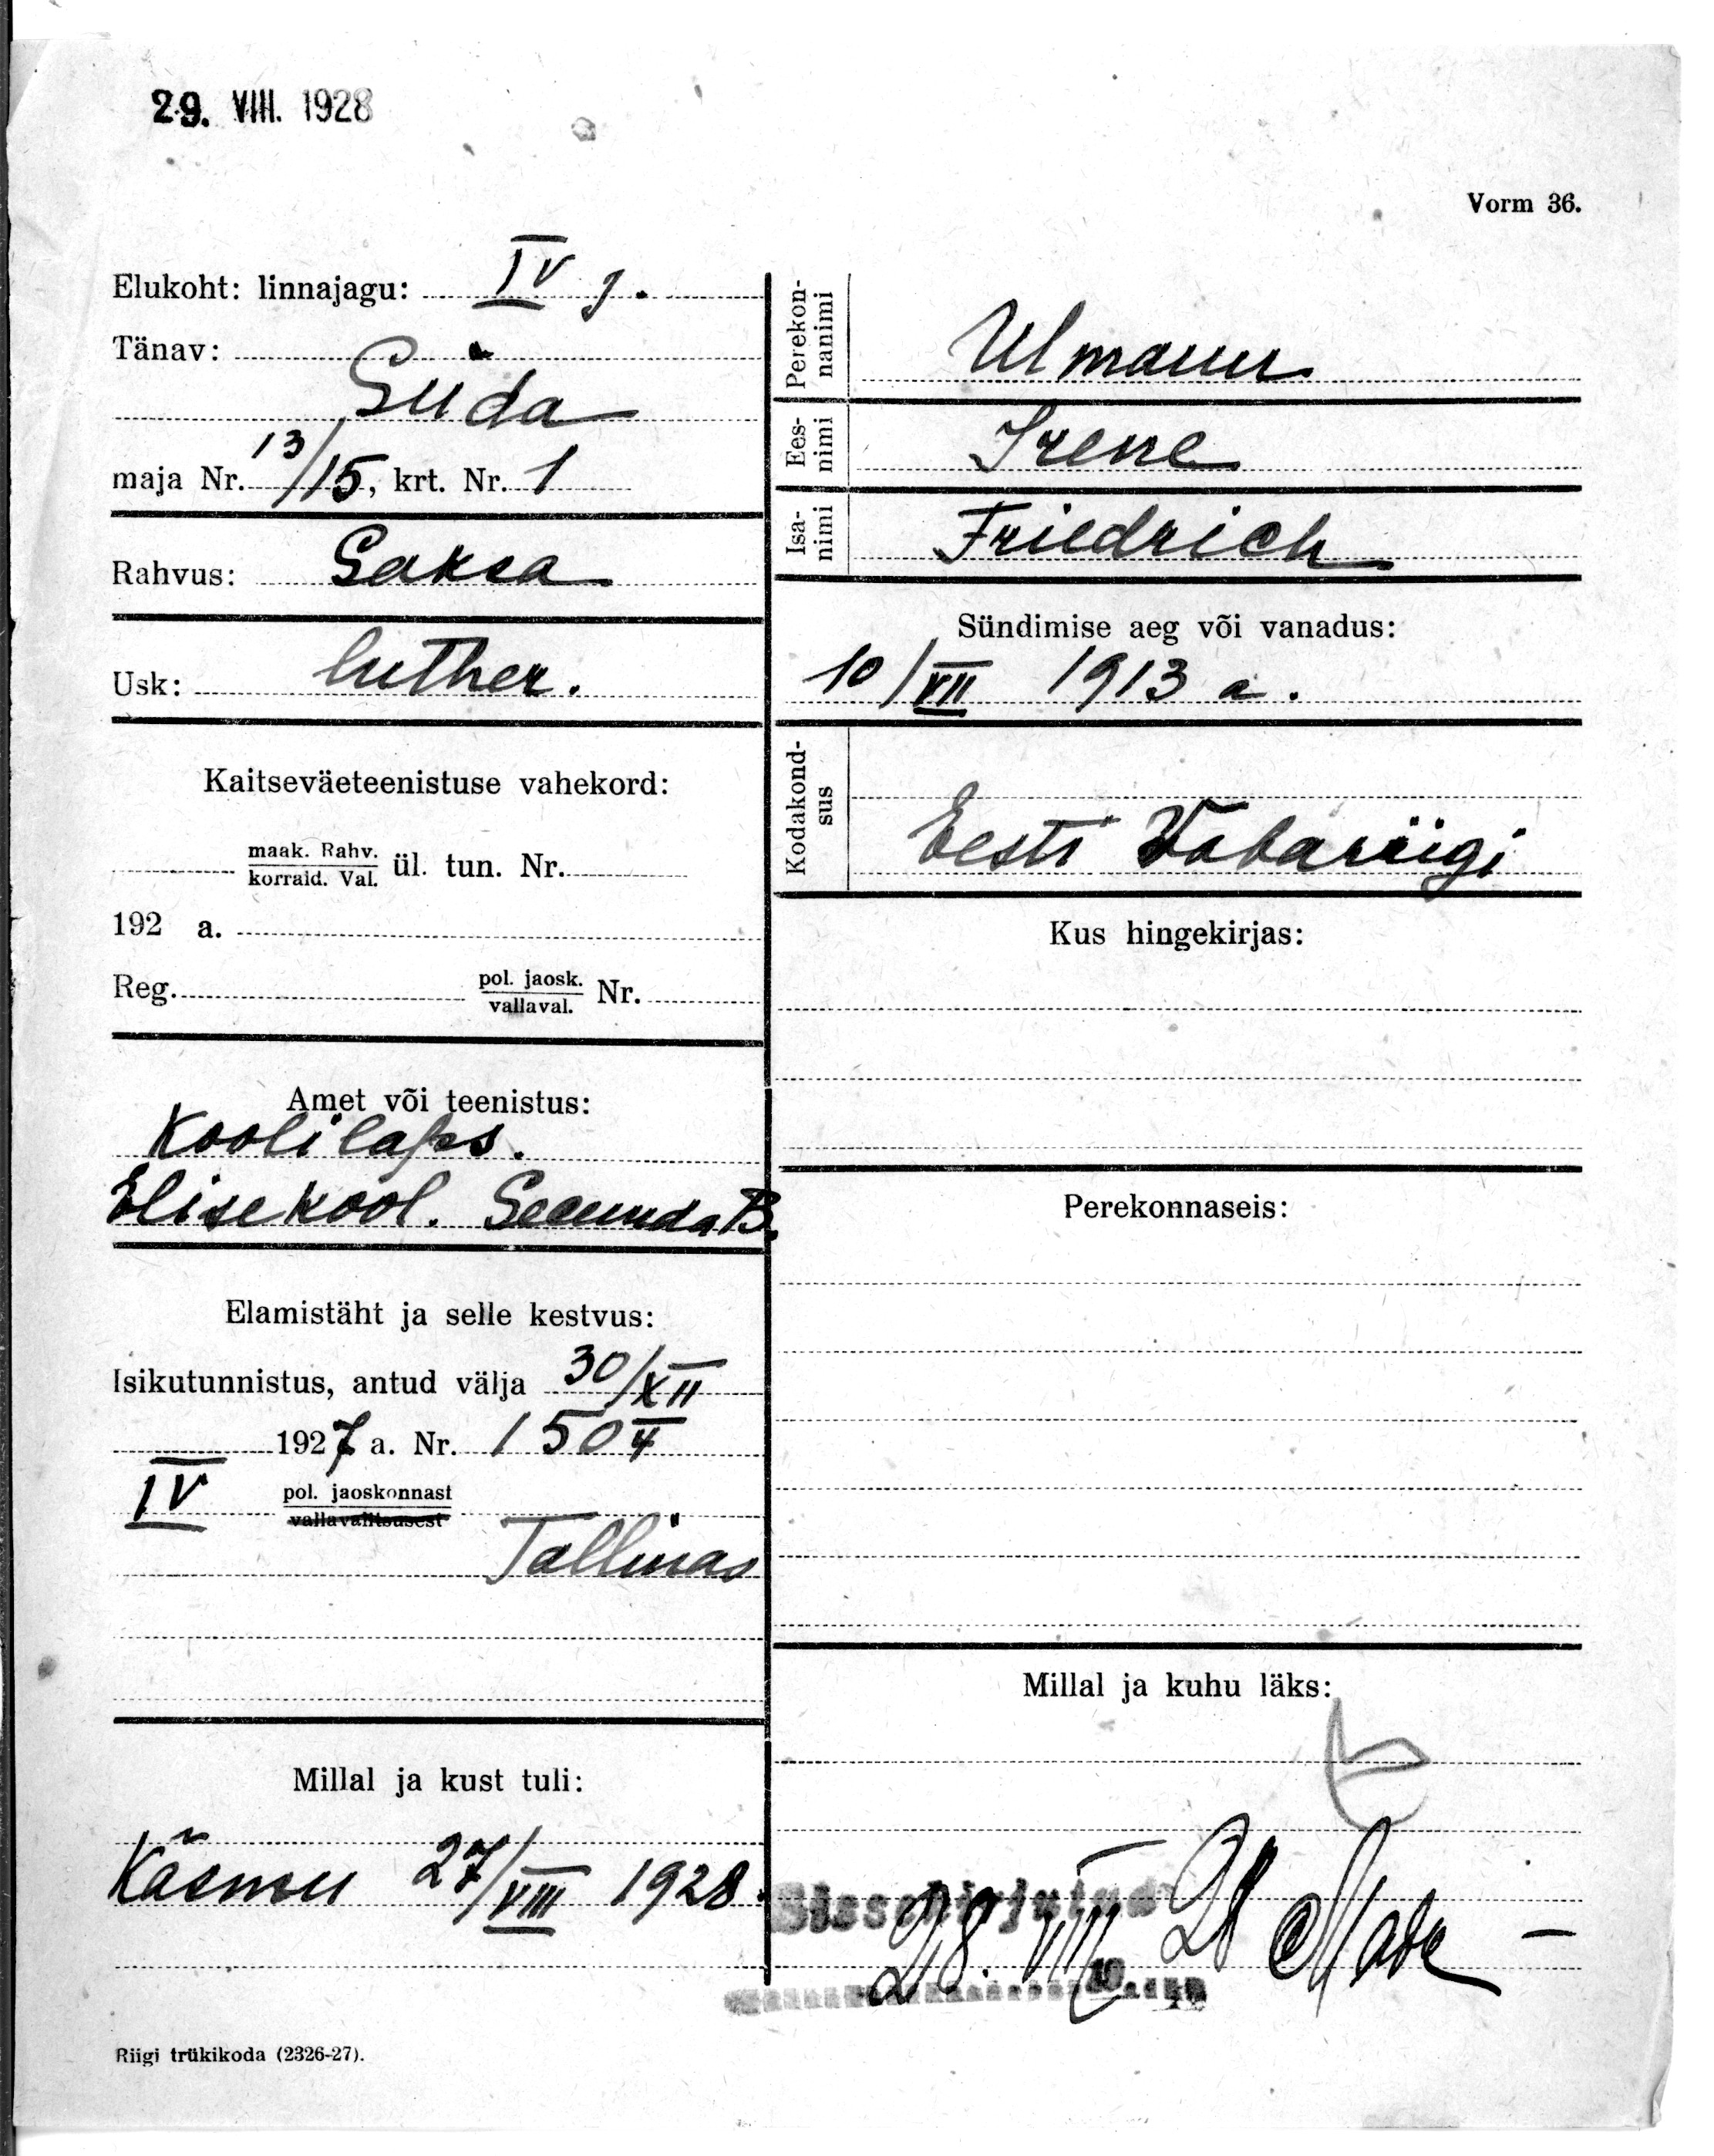 29. VIII. 1928
Vorm 36.
Elukoht: linnajagu: IV j.
Tänav:
Süda
maja Nr. 13/15, krt. Nr. 1
Rahvus: Saksa
Usk: luther.
Kaitseväeteenistuse vahekord:
maak. Rahv.
korrald. Val. ül. tun. Nr.
192 a.
Reg. pol. jaosk.
vallaval. Nr.
Amet või teenistus:
Koolilaps.
Elise kool. Secunda B.
Elamistäht ja selle kestvus:
Isikutunnistus, antud välja 30/XII
1927 a. Nr. 1504
IV pol. jaoskonnast
vallavalitsusest
Tallinas
Millal ja kust tuli:
Käsmu 27/VIII 1928.
Riigi trükikoda (2326-27).
Perekon-
nanimi Ulmann
Ees-
nimi Irene
Isa-
nimi Friedrich
Sündimise aeg või vanadus:
10/VII 1913 a.
Kodakond-
sus Eesti Vabariigi
Kus hingekirjas:
Perekonnaseis:
Millal ja kuhu läks:
Sissekirjutud
28. VIII 28